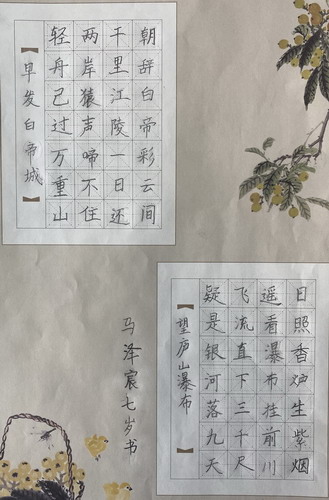 朝辞白帝彩云间
千里江陵一日还
两岸猿声啼不住
轻舟已过万重山
【早发白帝城】
日照香炉生紫烟
遥看瀑布挂前川
飞流直下三千尺
疑是银河落九天
【望庐山瀑布】
马泽宸七岁书